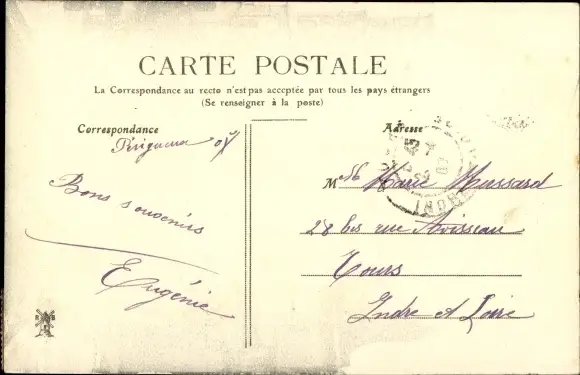 CARTE POSTALE
La Correspondance au recto n'est pas acceptée par tous les pays étrangers
(Se renseigner à la poste)
Correspondance
Adresse
Périgueux
Bons souvenirs
Eugénie
M Marie Mussard
28 bis rue Avisseau
Tours
Indre et Loire
INDRE